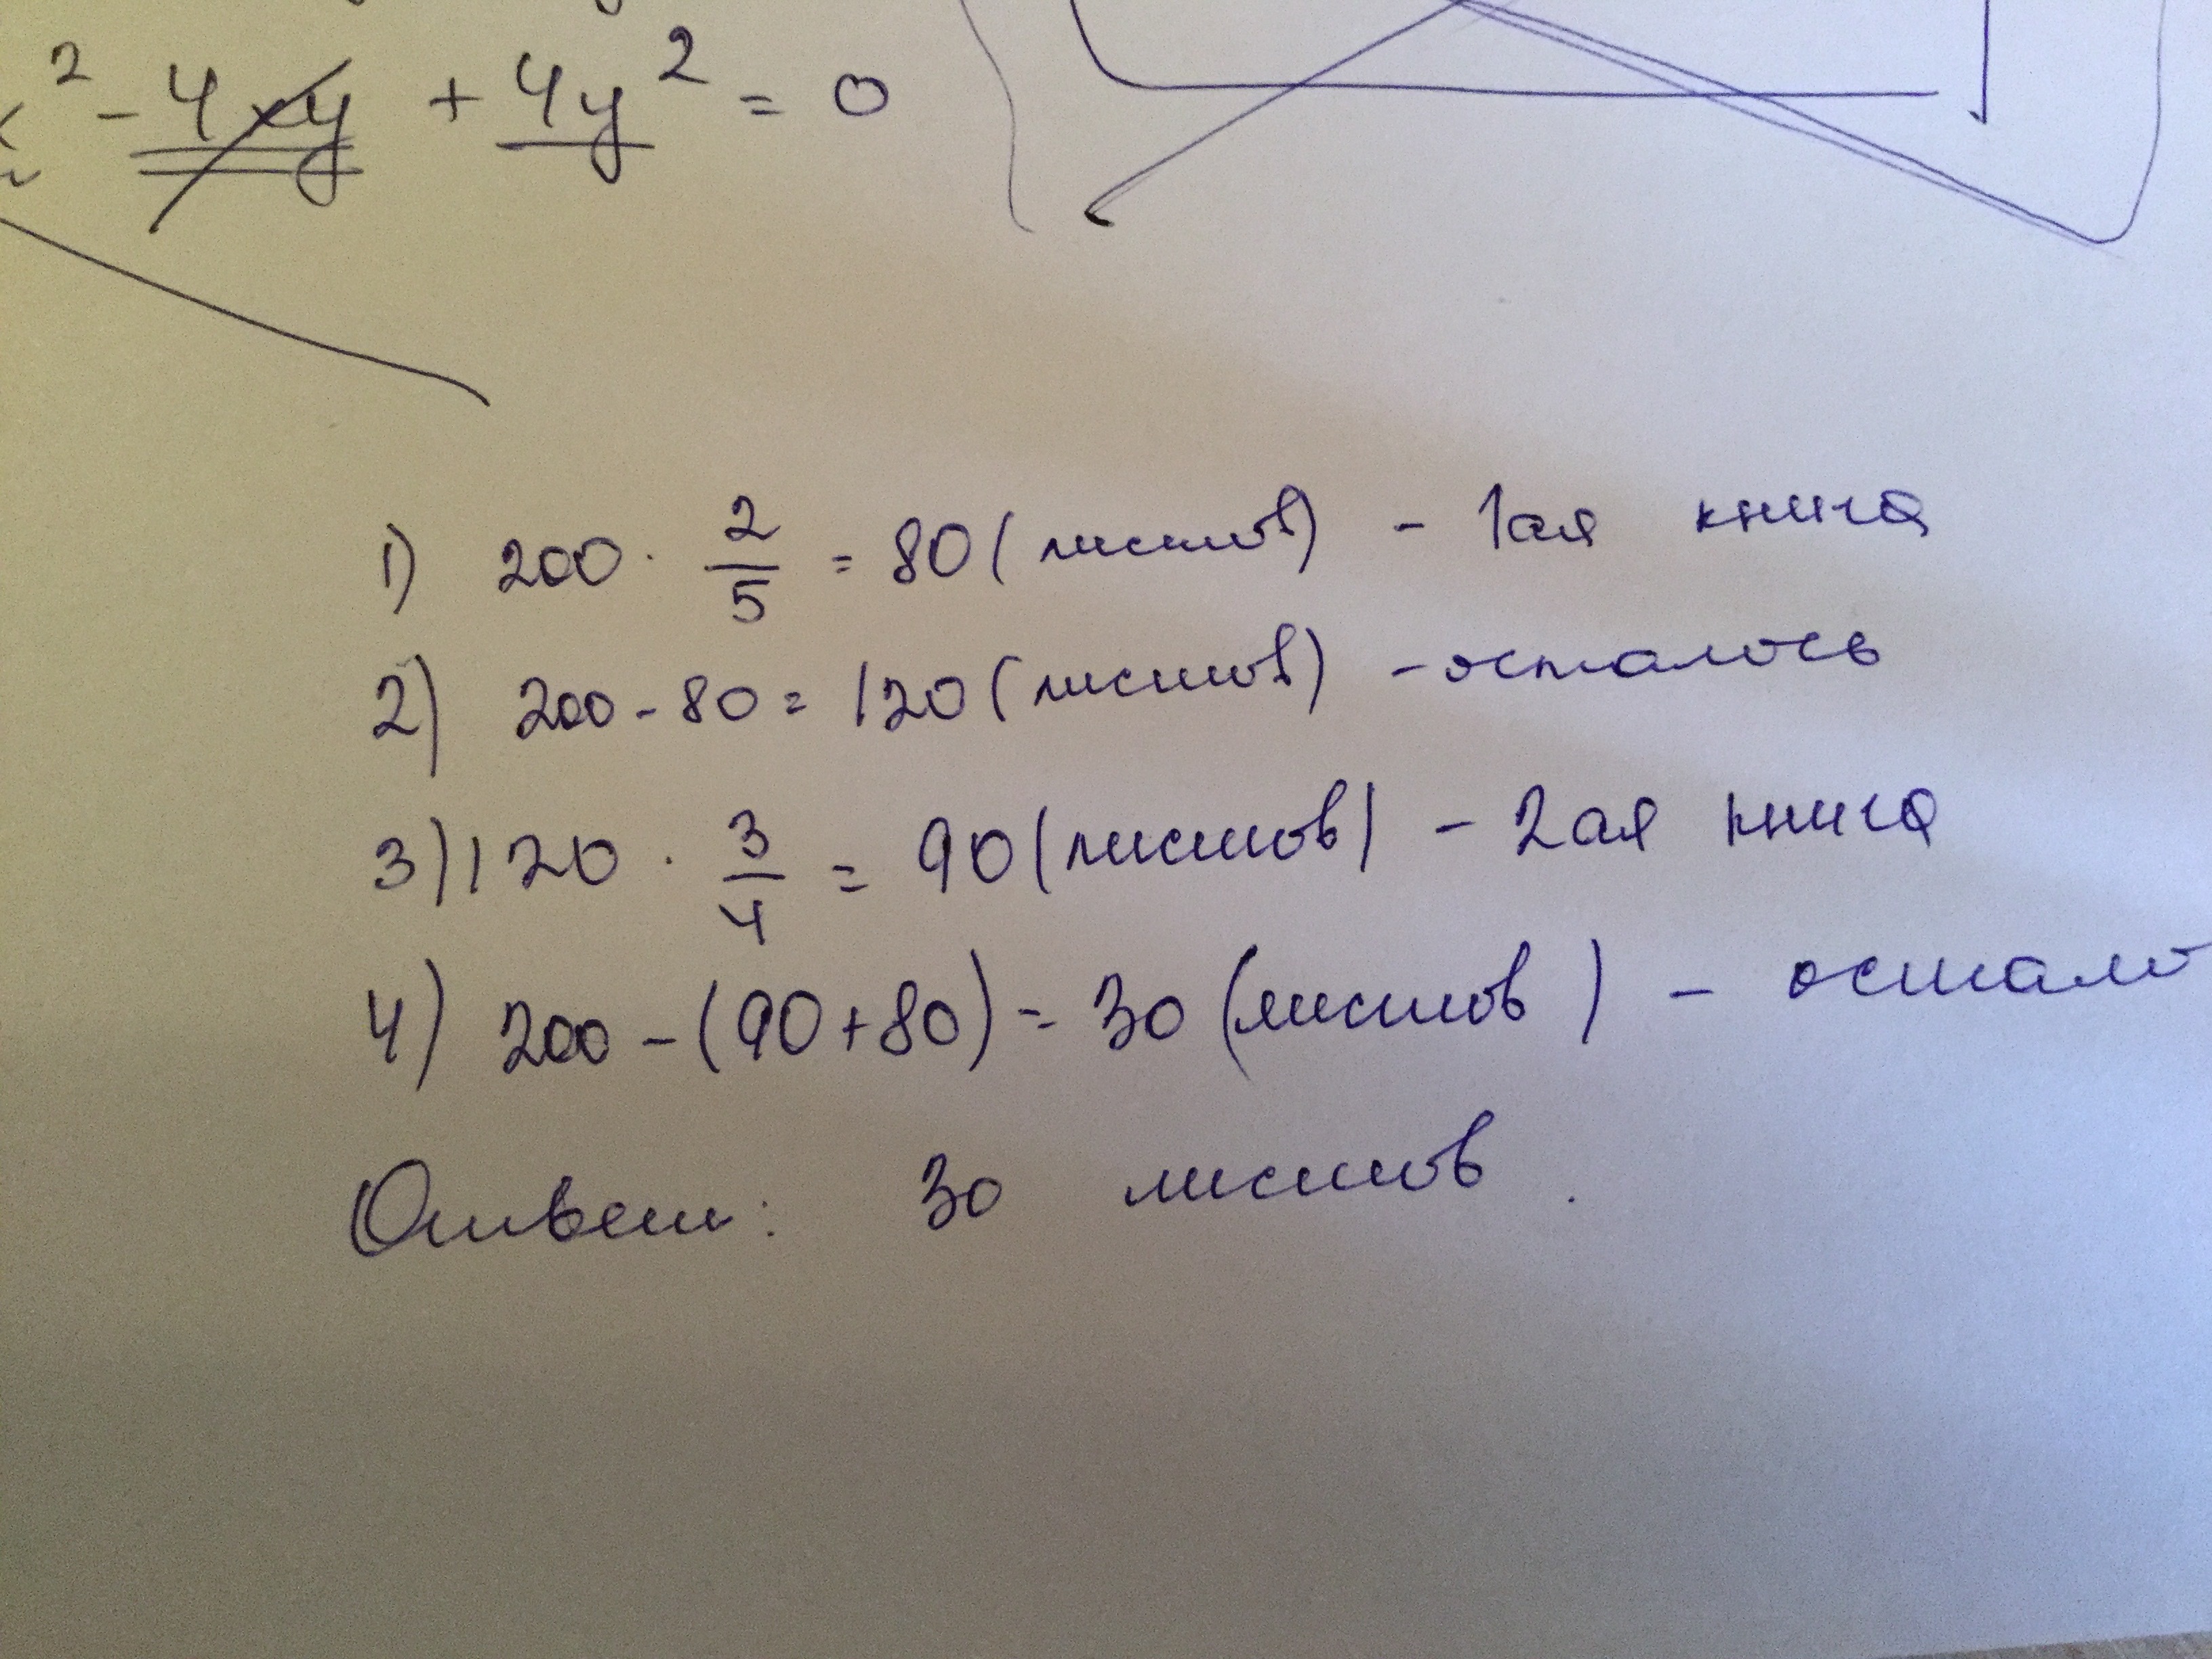 ² - 4xy + 4y² = 0
1) 200 · 2/5 = 80 (листов) - 1ая книга
2) 200 - 80 = 120 (листов) - осталось
3) 120 · 3/4 = 90 (листов) - 2ая книга
4) 200 - (90 + 80) = 30 (листов) - остало
Ответ: 30 листов.